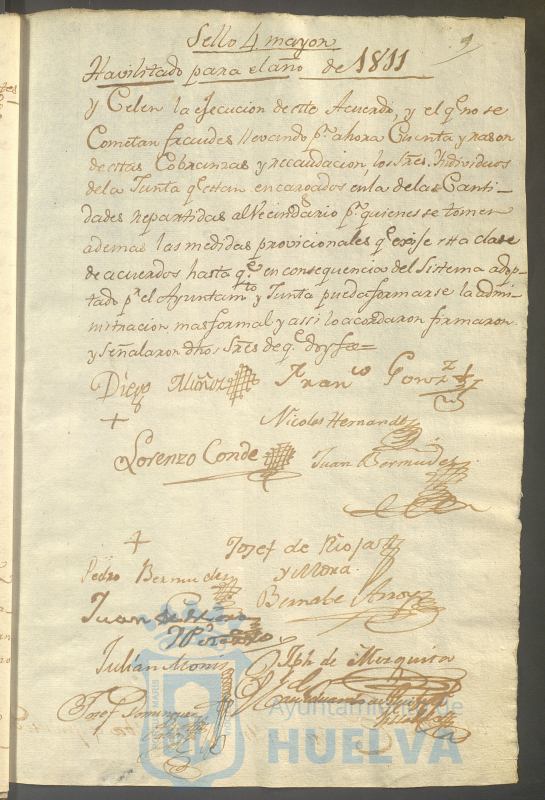 Sello 4 mayor 9
Havilitado para el año de 1811
y Celen la ejecucion de este Acuerdo, y el qe. no se
Cometan fraudes llevando pr. ahora Cuenta y rason
de estas Cobranzas y recaudacion, los Sres. Individuos
de la Junta qe. estan encargados en la de las Canti-
dades repartidas al Vecindario pr. quienes se tomen
ademas las medidas provicionales qe. exije esta clase
de acuerdos hasta qe. en consequencia del Sistema adop-
tado pr. el Ayuntamto. y Junta pueda formarse la admi-
nitracion mas formal y assi lo acordaron firmaron
y señalaron dhos Sres de qe. doy fee=
Diego Muñoz Franco Gonz
+ Nicolas Hernandz
Lorenzo Conde Juan Bermudez
+ Josef de Rioja
Pedro Bermudez y Mora.
Juan de Bernabe Arroyo
Julian Monis Jph de Mezquita
Josef Dominguez
Ayuntamiento de
HUELVA